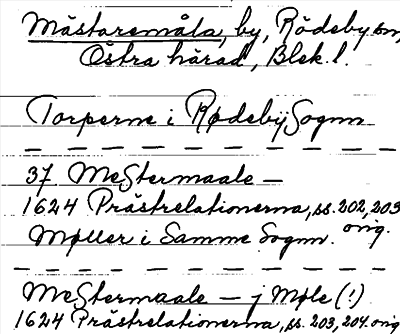 Mästaremåla, by, Rödeby sn,
Östra härad, Blek. l.
Torperne i Rødebÿ Sognn
37 MeStermaale —
1624 Prästrelationerna, ss. 202, 203
orig.
Møller i Samme Sognn.
MeStermaale — j Møle (!)
1624 Prästrelationerna, ss. 203, 204. orig